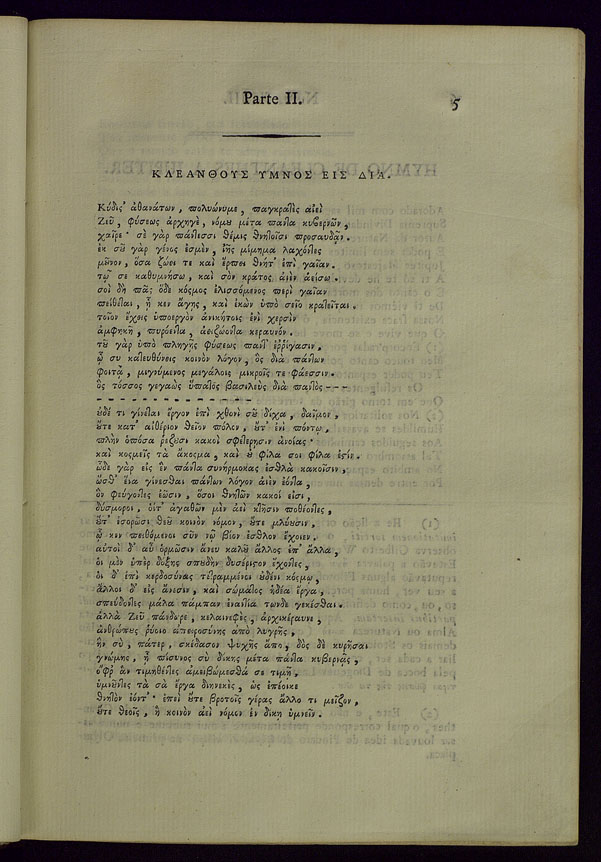 Parte II.
5
ΚΛΕΑΝΘΟΥΣ ΥΜΝΟΣ ΕΙΣ ΔΙΑ.
Κύδις' ἀθανάτων, πολυώνυμε, παγκρατὲς αἰεὶ
Ζεῦ, φύσεως ἀρχηγὲ, νόμου μέτα πάντα κυβερνῶν,
χαῖρε· σὲ γὰρ πάντεσσι θέμις θνητοῖσι προσαυδᾶν.
ἐκ σοῦ γὰρ γένος ἐσμὲν, ἰῆς μίμημα λαχόντες
μοῦνον, ὅσα ζώει τε καὶ ἕρπει θνήτ' ἐπὶ γαῖαν.
τῷ σε καθυμνήσω, καὶ σὸν κράτος αἰὲν ἀείσω.
σοὶ δὴ πᾶς ὅδε κόσμος ἑλισσόμενος περὶ γαῖαν
πείθεται, ᾗ κεν ἄγῃς, καὶ ἑκὼν ὑπὸ σεῖο κρατεῖται.
τοῖον ἔχεις ὑποεργὸν ἀνικήτοις ἐνὶ χερσὶν
ἀμφήκη, πυρόεντα, ἀειζώοντα κεραυνόν.
τοῦ γὰρ ὑπὸ πληγῆς φύσεως παντ' ἐῤῥίγασιν.
ᾧ συ κατευθύνεις κοινὸν λόγον, ὃς διὰ πάντων
φοιτᾷ, μιγνύμενος μεγάλοις μικροῖς τε φάεσσιν.
ὃς τόσσος γεγαὼς ὕπατος βασιλεὺς διὰ παντὸς ---
οὐδέ τι γίνεται ἔργον ἐπὶ χθονὶ σοῦ δίχα, δαῖμον,
οὔτε κατ' αἰθέριον θεῖον πόλον, οὔτ' ἐνὶ πόντῳ,
πλὴν ὁπόσα ῥέζουσι κακοὶ σφετέρῃσιν ἀνοίαις·
καὶ κοσμεῖς τὰ ἄκοσμα, καὶ οὐ φίλα σοι φίλα ἐστίν.
ὧδε γὰρ εἰς ἓν πάντα συνήρμοκας ἐσθλὰ κακοῖσιν,
ὥσθ' ἕνα γίνεσθαι πάντων λόγον αἰὲν ἐόντα,
ὃν φεύγοντες ἐῶσιν, ὅσοι θνητῶν κακοί εἰσι,
δύσμοροι, οἵτ' ἀγαθῶν μὲν ἀεὶ κτῆσιν ποθέοντες,
οὔτ' ἐσορῶσι θεοῦ κοινὸν νόμον, οὔτε κλύουσιν,
ᾧ κεν πειθόμενοι σὺν νῷ βίον ἐσθλον ἔχοιεν.
αὐτοὶ δ' αὖ ὁρμῶσιν ἄνευ καλοῦ ἄλλος ἐπ' ἄλλα,
οἱ μὲν ὑπὲρ δόξης σπουδὴν δυσέριστον ἔχοντες,
οἱ δ' ἐπὶ κερδοσύνας τετραμμένοι οὐδενὶ κόσμῳ,
ἄλλοι δ' εἰς ἄνεσιν, καὶ σώματος ἡδέα ἔργα,
σπεύδοντες μάλα πάμπαν ἐναντία τῶνδε γενέσθαι.
ἀλλὰ Ζεῦ πάνδωρε, κελαινεφὲς, ἀρχικέραυνε,
ἀνθρώπους ῥύοιο ἀπειροσύνης ἀπὸ λυγρῆς,
ἣν σὺ, πάτερ, σκέδασον ψυχῆς ἄπο, δὸς δὲ κυρῆσαι
γνώμης, ᾗ πίσυνος σὺ δίκης μέτα πάντα κυβερνᾷς,
ὄφρ' ἂν τιμηθέντες ἀμειβώμεσθά σε τιμῇ,
ὑμνοῦντες τὰ σὰ ἔργα διηνεκὲς, ὡς ἐπέοικε
θνητὸν ἐόντ'· ἐπεὶ οὔτε βροτοῖς γέρας ἄλλο τι μεῖζον,
οὔτε θεοῖς, ἢ κοινὸν ἀεὶ νόμον ἐν δίκῃ ὑμνεῖν.